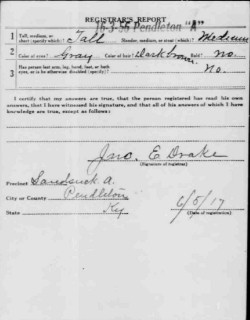 REGISTRAR'S REPORT
16-3-55 Pendleton "A"
1 Tall, medium, or short (specify which)? Tall Slender, medium, or stout (which)? Medium
2 Color of eyes? Gray Color of hair? Dark brown Bald? No.
3 Has person lost arm, leg, hand, foot, or both eyes, or is he otherwise disabled (specify)? No.
I certify that my answers are true, that the person registered has read his own
answers, that I have witnessed his signature, and that all of his answers of which I have
knowledge are true, except as follows:
Jno. E Drake
(Signature of registrar)
Precinct A.
City or County Pendleton
State Ky 6/5/17
(Date of registration)